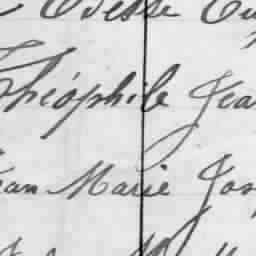 Odesse Eu
Théophile Jea
ean Marie Jos